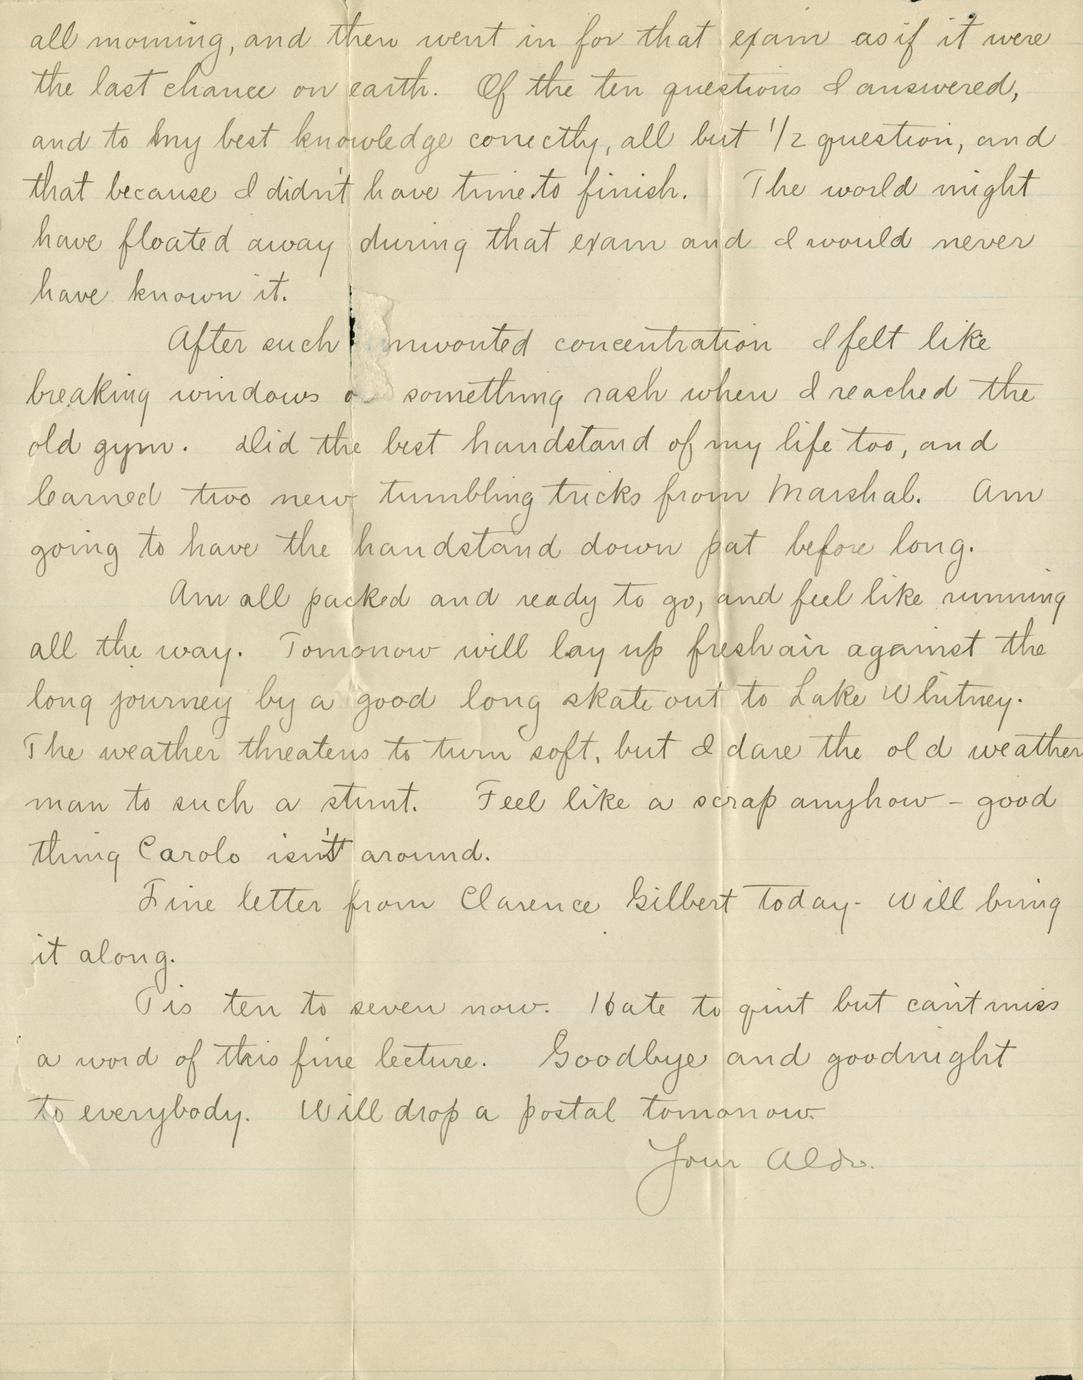 all morning, and then went in for that exam as if it were
the last chance on earth. Of the ten questions I answered,
and to my best knowledge correctly, all but 1/2 question, and
that because I didn't have time to finish. The world might
have floated away during that exam and I would never
have known it.
After such unwonted concentration I felt like
breaking windows or something rash when I reached the
old gym. Did the best handstand of my life too, and
learned two new tumbling tricks from Marshal. Am
going to have the handstand down pat before long.
Am all packed and ready to go, and feel like running
all the way. Tomorrow will lay up fresh air against the
long journey by a good long skate out to Lake Whitney.
The weather threatens to turn soft, but I dare the old weather
man to such a stunt. Feel like a scrap anyhow – good
thing Carolo isn't around.
Fine letter from Clarence Gilbert today - Will bring
it along.
Tis ten to seven now. Hate to quit but can't miss
a word of this fine lecture. Goodbye and goodnight
to everybody. Will drop a postal tomorrow.
Your Aldo.